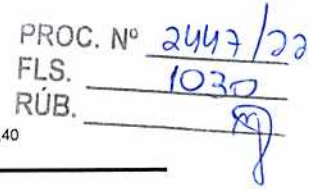 PROC. Nº 2447/22
FLS. 1030
RÚB.
,40